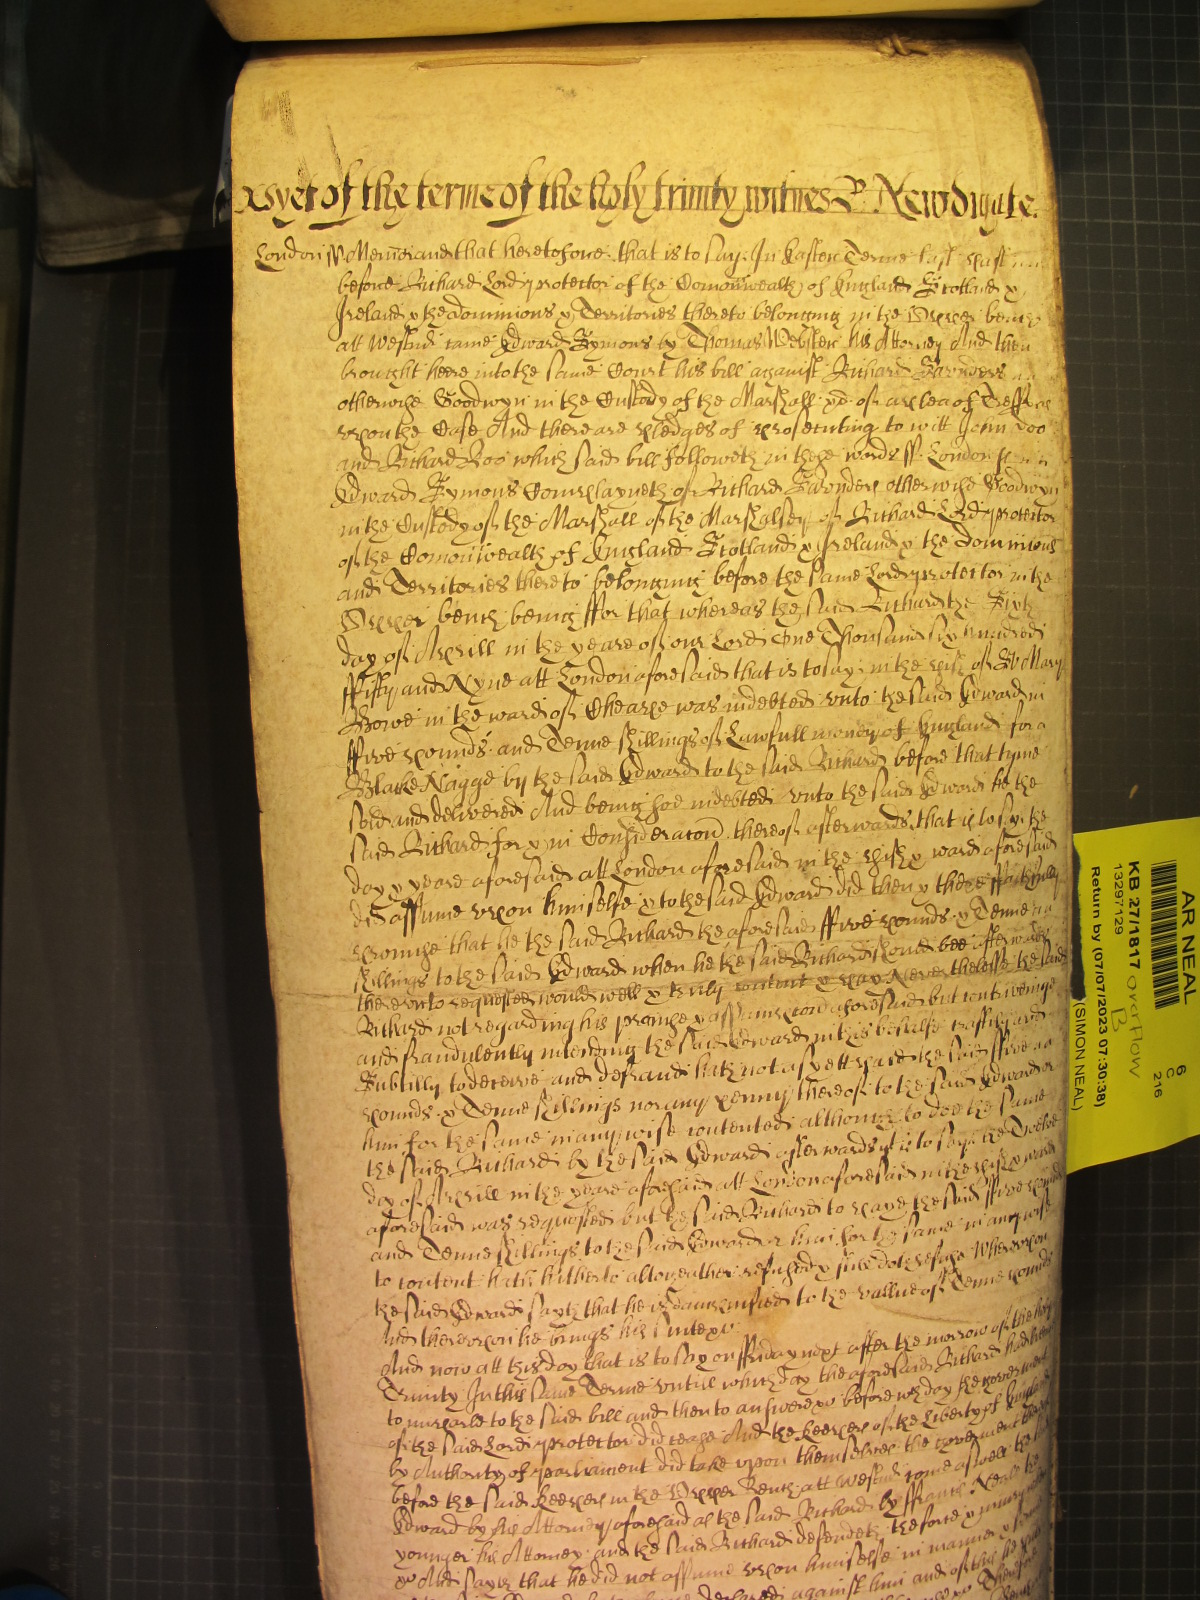 Yet of the terme of the holy trinity witnes R Newdigate.
London ss Memorand that heretofore that is to say In Easter Terme last past
before Richard Lord protector of the Comonwealth of England Scotland &
Ireland & the dominions & Territories thereto belonging in the Upper bench
att Westmr came Edward Symons by Thomas Webster his Attorney And then
brought heere into the same Court his bill against Richard Saunders
otherwise Goodwyn in the Custody of the Marshall &c of a plea of Trespas
upon the Case And there are pledges of prosecuting to witt John Doo
and Richard Roo which said bill followeth in these words ss London
Edward Symons Complayneth of Richard Saunders otherwise Goodwyn
in the Custody of the Marshall of the Marshalsey of Richard Lord protector
of the Comonwealth of England Scotland & Ireland & the dominions
and Territories thereto belonging before the same Lord protector in the
Upper bench being ffor that whereas the said Richard the Sixth
day of Aprill in the yeare of our Lord One Thousand six hundred
ffifty and Nyne att London aforesaid that is to say in the pish of St Mary
Bowe in the ward of Cheape was indebted unto the said Edward in
ffive pounds and Tenne shillings of Lawfull money of England for a
Blacke Nagge by the said Edward to the said Richard before that tyme
sold and delivered And being soe indebted unto the said Edward he the
said Richard for & in Consideracon thereof afterwards that is to say the
day & yeare aforesaid att London aforesaid in the pish & ward aforesaid
did assume upon himselfe & to the said Edward did then & there faithfully
promise that he the said Richard the aforesaid ffive pounds & Tenne
shillings to the said Edward when he the said Richard should bee afterwards
thereunto requested would well & truly content & pay Neverthelesse the said
Richard not regarding his promise & assumpcon aforesaid but contriveinge
and fraudulently intending the said Edward in this behalfe craftily and
Subtilly to deceive and defraud hath not as yett paid the said ffive
pounds & Tenne shillings nor any penny thereof to the said Edward or
him for the same in any wise contented although to doe the same
the said Richard by the said Edward afterwards yt is to say the Twelveth
day of Aprill in the yeare aforesaid att London aforesaid in the pish & ward
aforesaid was requested but the said Richard to paye the said ffive pounds
and Tenne shillings to the said Edward or him for the same in any wise
to content hath hitherto altogeather refused & still doth refuse Whereupon
the said Edward sayth that he is damnified to the vallue of Tenne pounds
And thereupon he brings his suite &c
And now att this day that is to say on ffriday next after the morrow of the holy
Trinity In this same Terme untill which day the aforesaid Richard had licence
to imparle to the said bill and then to answere &c before wch day the goverment
of the said Lord protector did cease And the keepers of the Liberty of England
by Authority of parliament did take upon themselves the goverment thereof
before the said keepers in the Upper Bench att Westmr come aswell the said
Edward by his Attorney aforesaid as the said Richard by ffrancis Neale the
younger his Attorney and the said Richard defendeth the force & iniury
&c And sayth that he did not assume upon himselfe in manner &
declared against him and of this he
AR NEAL
6
C
216
KB 27/1817 overflow
B
13297129
Return by (07/07/2023 07:30:38)
(SIMON NEAL)